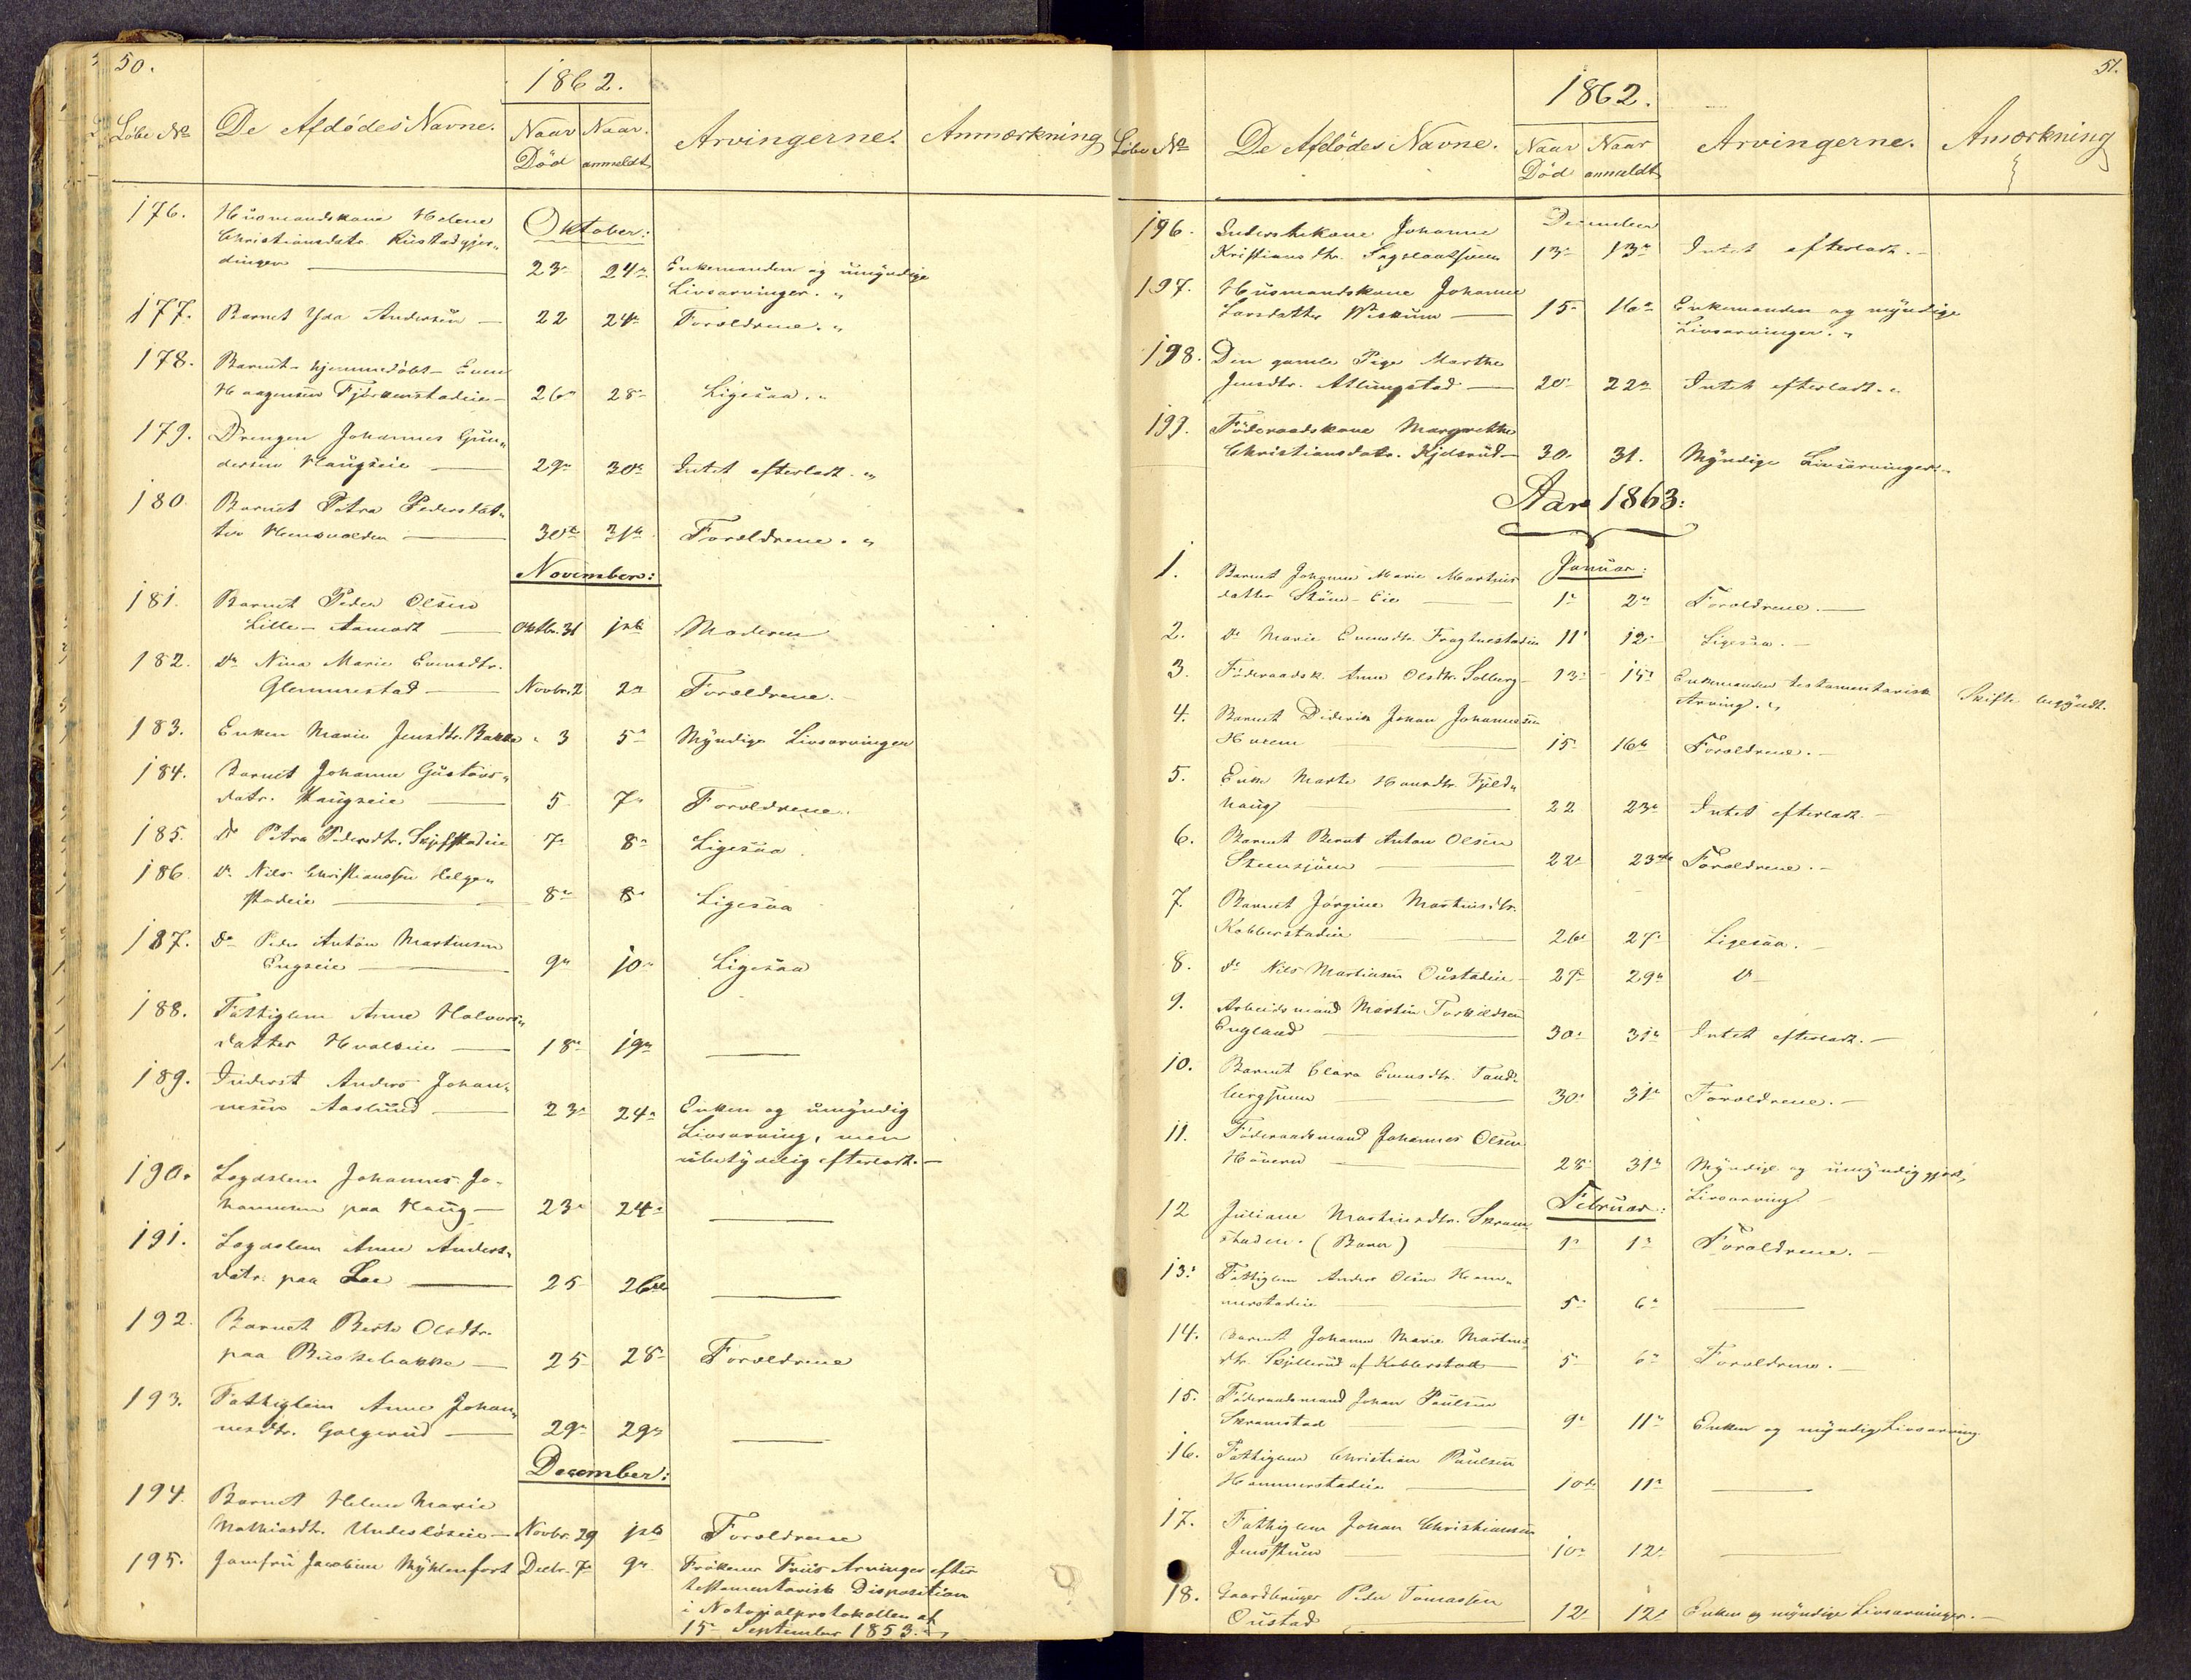 50.
1862.
Løbe No De Afdødes Navne. Naar Død Naar anmeldt Arvingerne. Anmærkning
176. Huusmandskone Helene
Christiansdatr. Rustadgjer„
dingen Oktober: 23. 24. Enkemanden og umyndige
Livsarvinger. „
177. Barnet Ida Andersen 22 24 Forældrene. „
178. Barnet hjemmedøbt Even
Haagensen Fjørkenstadeie 26 28 Ligesaa. „
179. Drengen Johannes Gun„
dersen Haugseie 29 30 Intet efterladt. „
180. Barnet Petra Pedersdat„
ter Hemsvolden 30te 31te Forældrene. „
November:
181. Barnet Peder Olsen
Lille-Aamodt Oktbr. 31 1ste Moderen
182. Do Nina Marie Evensdtr.
Glemmestad Novbr. 2 2 Forældrene.
183. Enken Marie Jensdtr. Bakke „ 3 5 Myndige Livsarvinger
184. Barnet Johanne Gustavs„
datr. Haugseie 5 7 Forældrene.
185. Do Petra Pedersdtr. Skjefstadeie 7 8 Ligesaa.
186 Do Nils Christianssen Helge„
stadeie 8 8 Ligesaa
187. Do Peder Anton Martinsen
Engseie 9 10 Ligesaa
188. Fattiglem Anne Halvors„
datter Hvalseie 18 19
189. Inderst Anders Johan„
nesen Aaslund 23 24 Enken og umyndig
Livsarving, men
ubetydelig efterladt.
190. Lægdslem Johannes Jo„
hannesen paa Haug 23 24
191. Lægdslem Anne Anders„
datr. paa Lee 25 26de
192. Barnet Berte Olsdtr.
paa Buskebakke 25 28 Forældrene
193. Fattiglem Anne Johan„
nesdtr. Galgerud 29 29
December:
194. Barnet Helene Marie
Mathiasdtr. Undeslöseie Novbr. 29 1ste Forældrene
195. Jomfru Jacobine Myhlenfort Decbr. 7 9 Frøkener Friis Arvinger efter
testamentarisk Disposition
i Notarialprotokollen af
15 September 1853.
51.
1862.
Løbe No De Afdødes Navne. Naar Død Naar anmeldt Arvingerne. Anmærkning
December
196. Inderstekone Johanne
Kristiansdtr. 13 13 Intet efterladt.
197. Huusmandskone Johanne
Larsdatter Wiskum 15 16 Enkemanden og myndige
Livsarvinger. „
198. Den gamle Pige Marthe
Jensdtr. Atlungstad 20 22 Intet efterladt. „
199. Föderaadskone Margrethe
Christiansdatr. Kjelsrud 30. 31. Myndige Livsarvinger.
Aar 1863:
Januar:
1. Barnet Johanne Marie Martins
datter Steen-Eie 1 2 Forældrene.
2. Do Marie Evensdtr. 11 12 Ligesaa.
3. Föderaadsk. Anne Olsdtr. Solberg 13 15 Enkemanden testamentarisk Skifte begyndt.
Arving. „
4. Barnet Diderik Johan Johannesen
15 16 Forældrene.
5. Enke Marte Hansdtr. Fjeld„
haug 22 23 Intet efterladt.
6. Barnet Bernt Anton Olsen
Steensjøen 22 23de Forældrene.
7. Barnet Jørgine Martinsdtr.
Koblerstadeie 26 27 Ligesaa.
8. Do Nils Martinsen Oustadeie 27 29 Do
9. Arbeidsmand Martin Torkildsen
England 30 31 Intet efterladt.
10. Barnet Clara Evensdtr. Tand„
30 31 Forældrene.
11. Föderaadsmand Johannes Olsen
28 31 Myndige og umyndiggjort
Livsarving
Februar:
12 Juliane Martinsdtr. Skram„
staden. (Barn) 1 1 Forældrene.
13. Fattiglem Anders Olsen Ham„
merstadeie 5 6
14. Barnet Johanne Marie Martins„
dtr. Skjellerud af Koblerstad 5 6 Forældrene.
15. Föderaadsmand Johan Paulsen
Skramstad 9 11 Enken og myndig Livsarving
16. Fattiglem Christian Paulsen
Hammerstadeie 10de 11
17. Fattiglem Johan Christiansen
10 12
18. Gaardbruger Peder Tomassen
Oustad 12 12 Enken og myndige Livsarvinger.